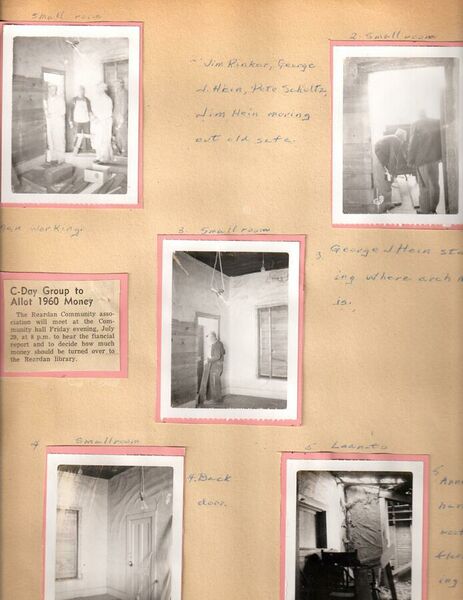 Small room
2. Small room
Jim Rinker, George
J. Hein, Pete Schultz,
Jim Hein moving
out old safe.
man working.
3. Small room
3. George J. Hein sta
ing where arch
is.
C-Day Group to
Allot 1960 Money
The Reardan Community asso-
ciation will meet at the Com-
munity hall Friday evening, July
29, at 8 p.m. to hear the fiancial
report and to decide how much
money should be turned over to
the Reardan library.
4. Small room
4. Back
door.
5.
5.
ing